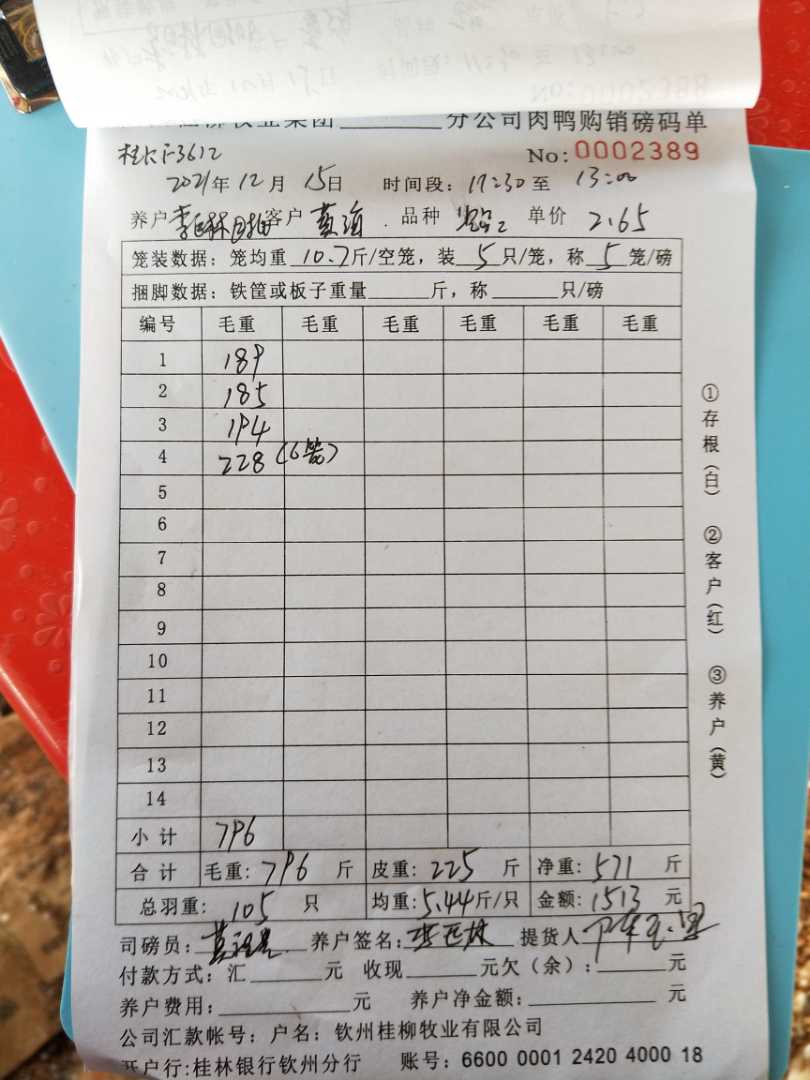 柳牧业集团______分公司肉鸭购销磅码单
桂KF3612
No:0002389
2021年12月15日 时间段:11:30至13:00
养户 客户 黄海 品种 单价 2.65
笼装数据:笼均重 10.7斤/空笼,装 5只/笼,称 5笼/磅
捆脚数据:铁筐或板子重量______斤,称______只/磅
编号 毛重 毛重 毛重 毛重 毛重 毛重
1 189
2 185
3 194
4 228(6笼)
5
6
7
8
9
10
11
12
13
14
小计 796
合计 毛重:796斤 皮重:225斤 净重:571斤
总羽重:105只 均重:5.44斤/只 金额:1513元
司磅员: 养户签名: 提货人
付款方式:汇______元 收现______元欠(余):______元
养户费用:______元 养户净金额:______元
公司汇款帐号:户名:钦州桂柳牧业有限公司
开户行:桂林银行钦州分行 账号:6600 0001 2420 4000 18
①存根(白) ②客户(红) ③养户(黄)
No:0002388